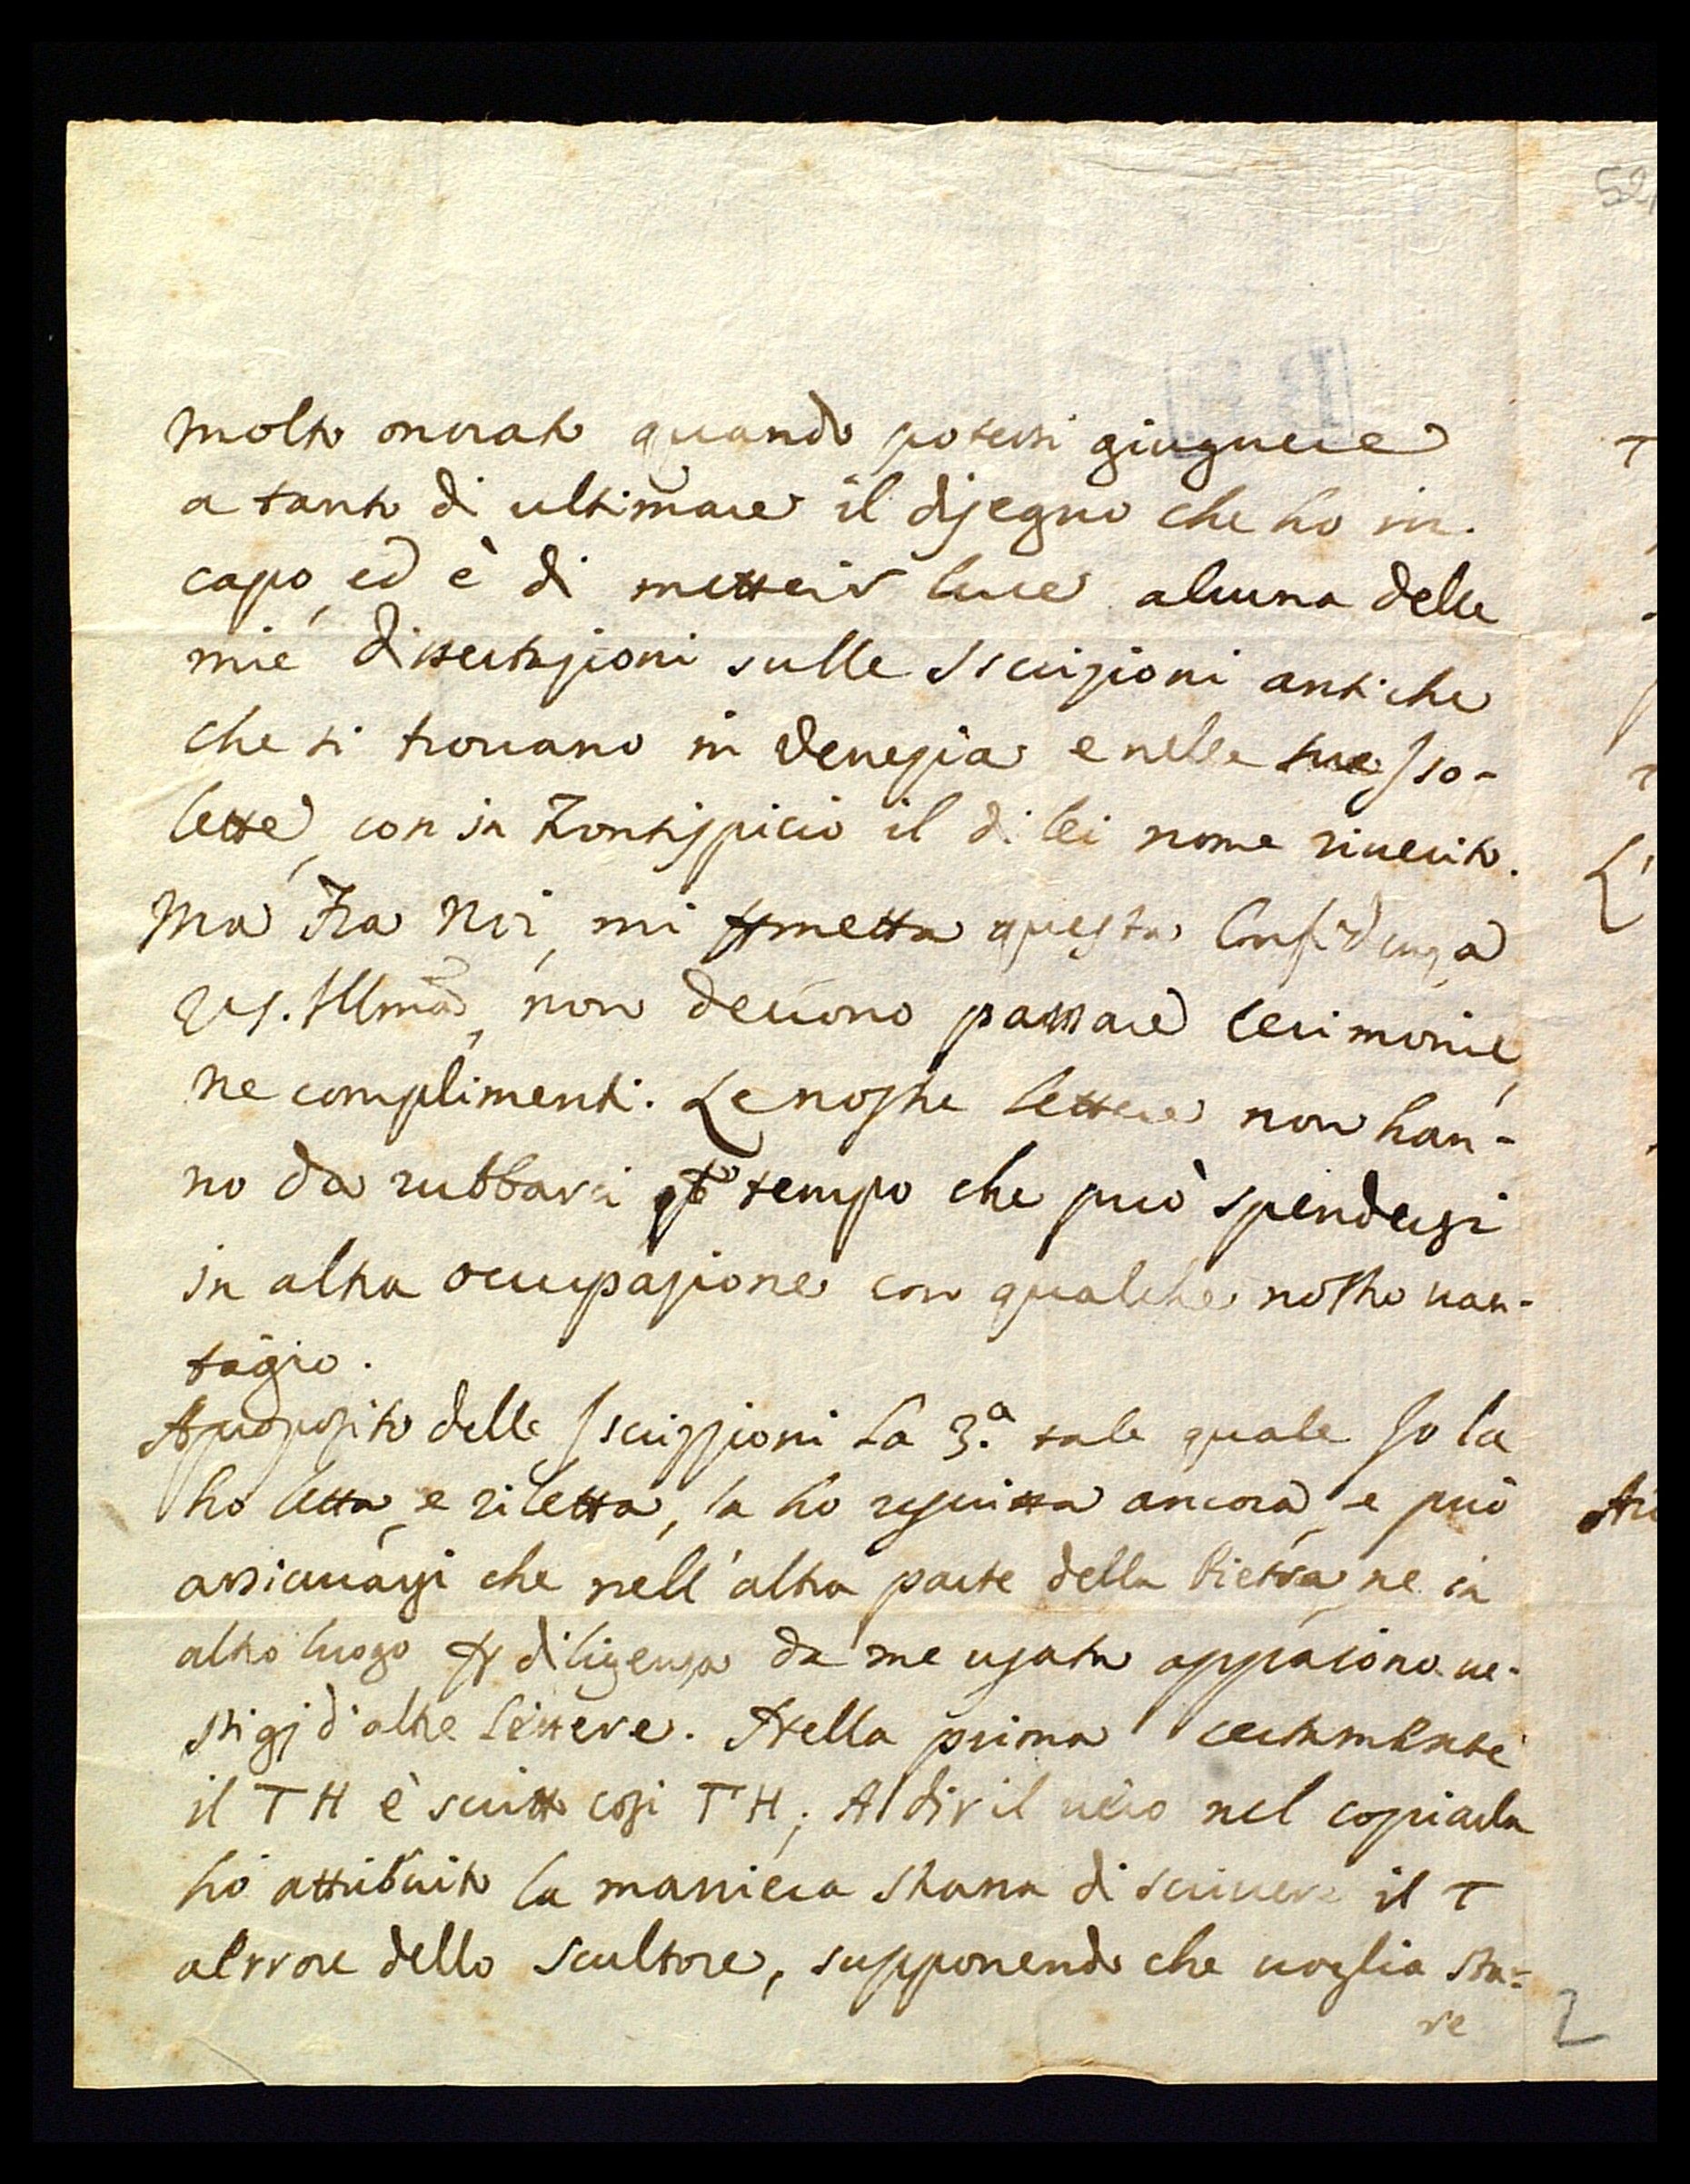 molto onorato quando potessi giugnere
a tanto di ultimare il disegno che ho in
capo, ed è di metter in luce alcuna delle
mie dissertazioni sulle Iscrizioni antiche
che si trovano in Venezia e nelle sue Iso-
lette, con in Frontispicio il di lei nome riverito.
Ma Fra Noi, mi pmetta questa Confidenza
VS. Illma, non devono passare cerimonie,
ne complimenti. Le nostre lettere non han-
no da rubbarci q.to tempo che può spendersi
in altra occupazione con qualche nostro van-
tagio.
Aproposito delle Iscrizzioni La 3.a tale quale Io la
ho letta, e riletta, la ho rescritta ancora, e può
assicurarsi che nell' altra parte della Pietra, ne in
altro luogo p diligenza da me usata appaiono ve-
stigj d'altre lettere. Nella prima certamente
il TH è scritto così TH; A dir il vero nel copiarla
hò attribuito la maniera strana di scrivere il T
al rrore dello Scultore, supponendo che voglia sta-
re
2
52
T
T
L'